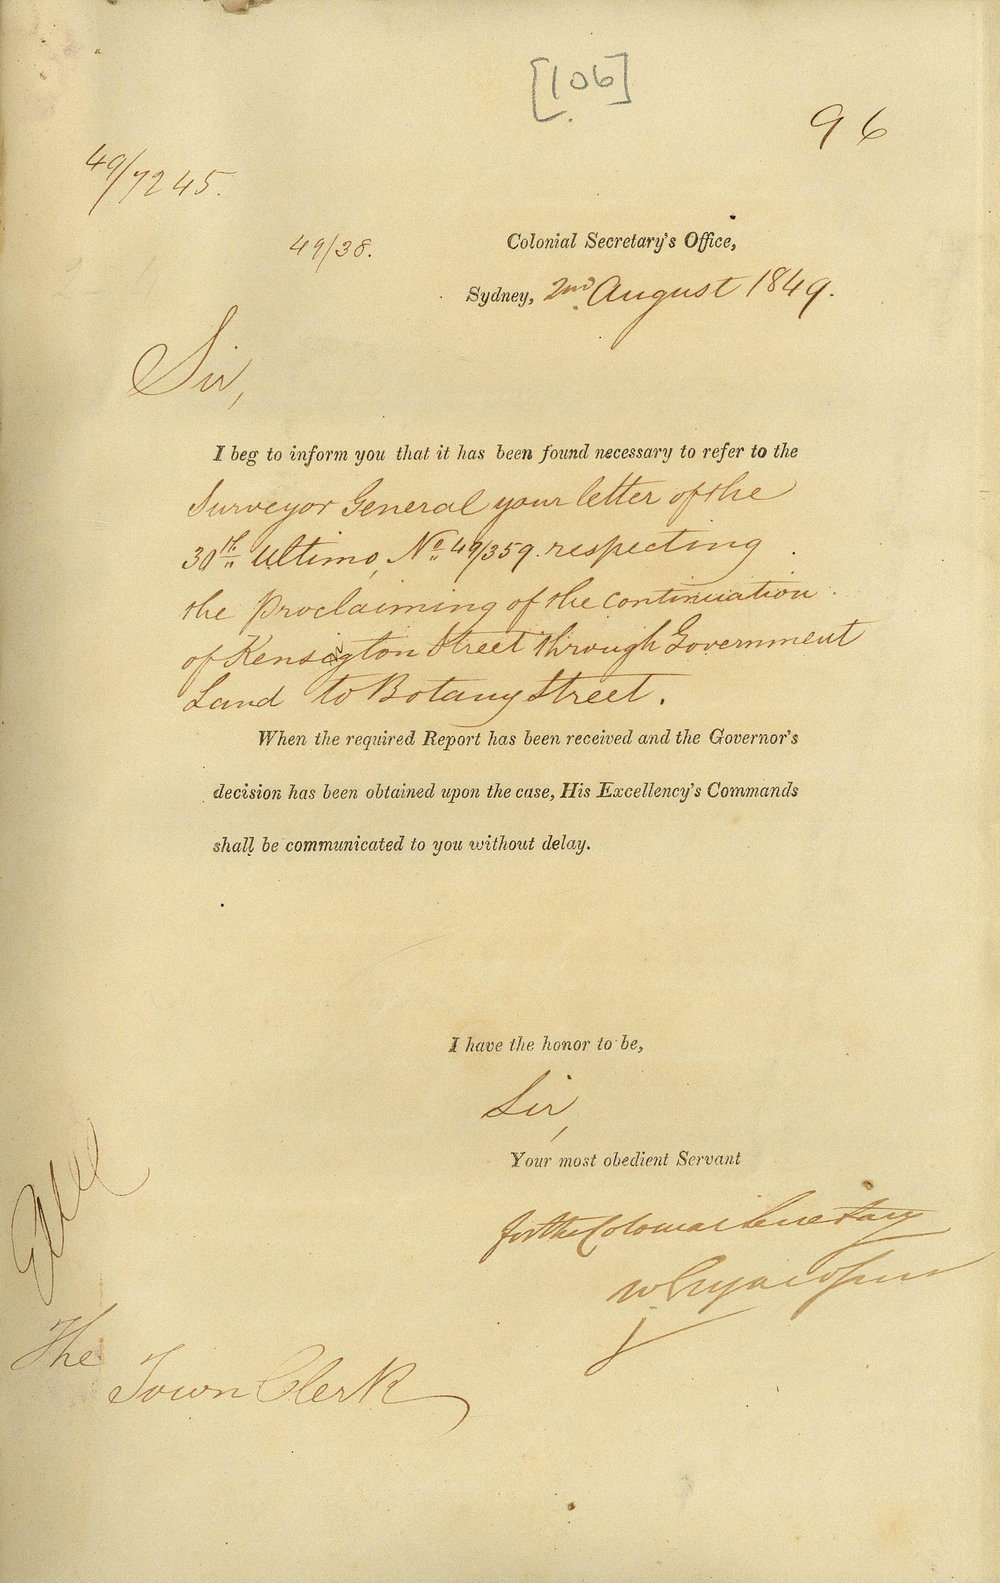 [106]
96
49/7245.
49/38.
Colonial Secretary's Office,
Sydney, 2nd August 1849.
Sir,
I beg to inform you that it has been found necessary to refer to the
Surveyor General your letter of the
30th Ultimo, No 49/359. respecting
the Proclaiming of the continuation
of Kensigton Street through Government
Land to Botany Street.
When the required Report has been received and the Governor's
decision has been obtained upon the case, His Excellency's Commands
shall be communicated to you without delay.
I have the honor to be,
Sir,
Your most obedient Servant
for the Colonial Secretary
W
The
Town Clerk